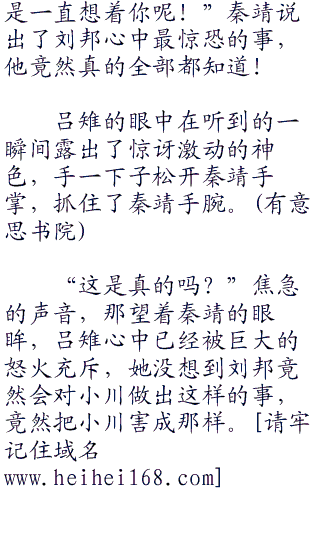 是一直想着你呢！”秦靖说
出了刘邦心中最惊恐的事，
他竟然真的全部都知道！
吕雉的眼中在听到的一
瞬间露出了惊讶激动的神
色，手一下子松开秦靖手
掌，抓住了秦靖手腕。(有意
思书院)
“这是真的吗？”焦急
的声音，那望着秦靖的眼
眸，吕雉心中已经被巨大的
怒火充斥，她没想到刘邦竟
然会对小川做出这样的事，
竟然把小川害成那样。[请牢
记住域名
www.heihei168.com]